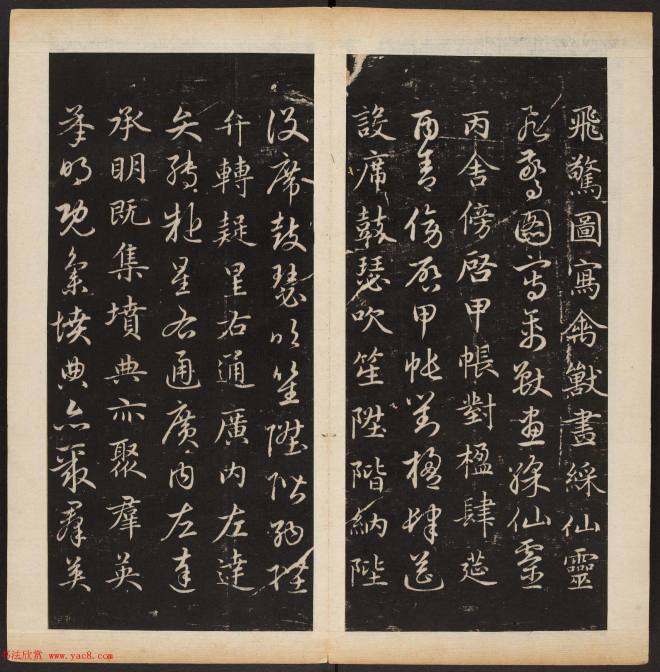 飛驚圖寫禽獸畫綵仙靈
飛驚圖寫禽獸畫綵仙靈
丙舍傍啓甲帳對楹肆筵
丙舍傍啓甲帳對楹肆筵
設席鼓瑟吹笙陞階納陛
設席鼓瑟吹笙陞階納陛
弁轉疑星右通廣內左達
弁轉疑星右通廣內左達
承明既集墳典亦聚羣英
承明既集墳典亦聚羣英
书法欣赏 www.yac8.com